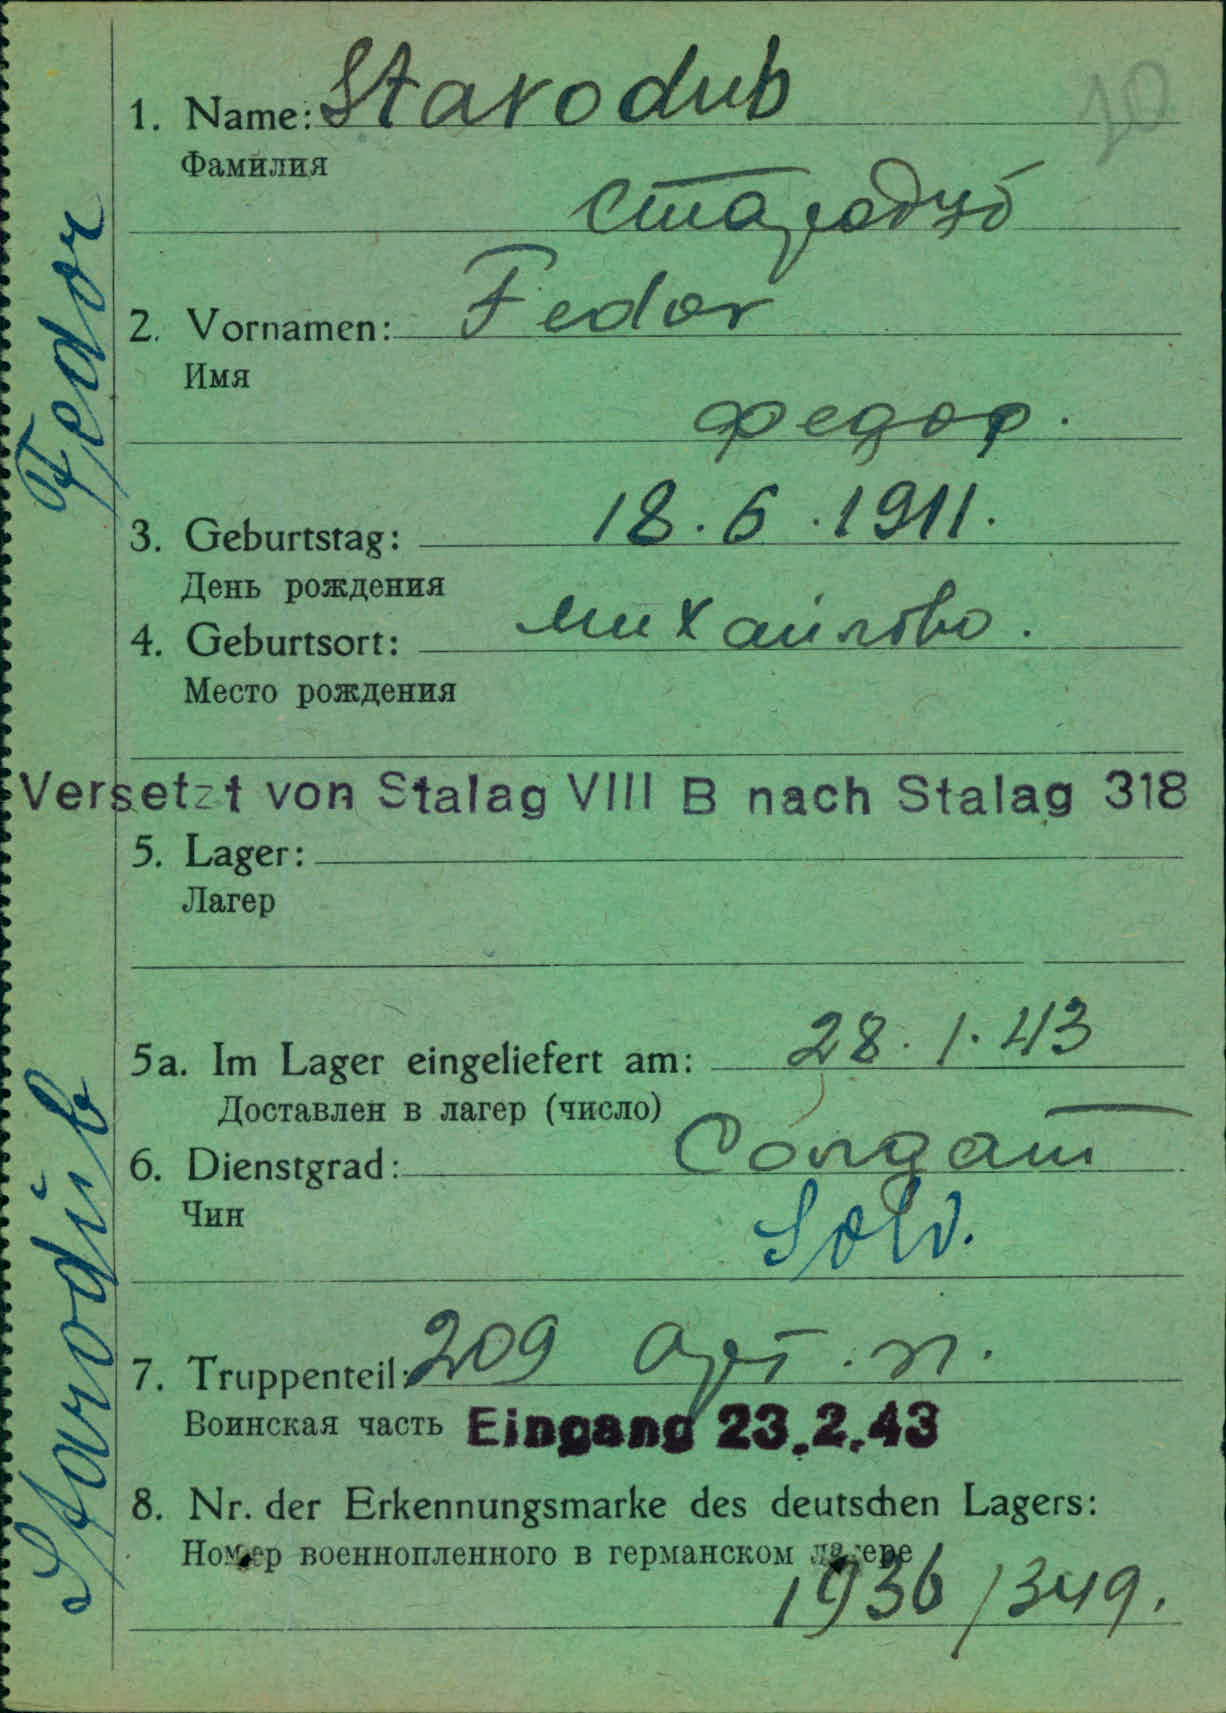 20
1. Name: Starodub
Фамилия
Стародуб
2. Vornamen: Fedor
Имя
Федор.
3. Geburtstag: 18.6.1911.
День рождения
4. Geburtsort: Михайлово.
Место рождения
Versetzt von Stalag VIII B nach Stalag 318
5. Lager:
Лагер
5a. Im Lager eingeliefert am: 28.1.43
Доставлен в лагер (число)
6. Dienstgrad: Солдат
Чин
Sold.
7. Truppenteil: 209 арт. п.
Воинская часть Eingang 23.2.43
8. Nr. der Erkennungsmarke des deutschen Lagers:
Номер военнопленного в германском лагере
1936/349.
Starodub Fedor